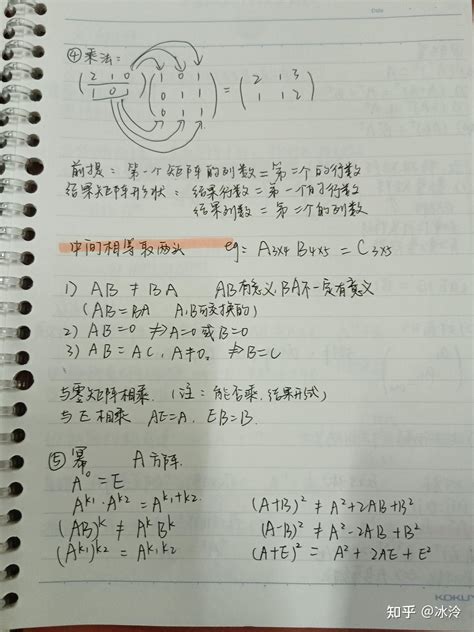 ④乘法:
(2 1 0 / 1 0 1)(1 0 1 / 0 1 1 / 0 1 1) = (2 1 3 / 1 1 2)
前提: 第一个矩阵的列数=第二个的行数
结果矩阵形状: 结果行数=第一个的行数
结果列数=第二个的列数
中间相等取两头 eg: A3x4 B4x5 = C3x5
1) AB ≠ BA AB有意义,BA不一定有意义
(AB=BA A,B可交换的)
2) AB=0 ⇏ A=0 或 B=0
3) AB=AC, A≠0, ⇏ B=C
与零矩阵相乘.(注: 能否乘,结果形式)
与E相乘 AE=A. EB=B.
⑤幂 A方阵.
A⁰=E
A^k1 · A^k2 = A^k1+k2. (A+B)² ≠ A²+2AB+B²
(AB)^k ≠ A^k B^k (A-B)² ≠ A²-2AB+B²
(A^k1)^k2 = A^k1k2 (A+E)² = A²+2AE+E²
知乎 @冰泠
KOKUY